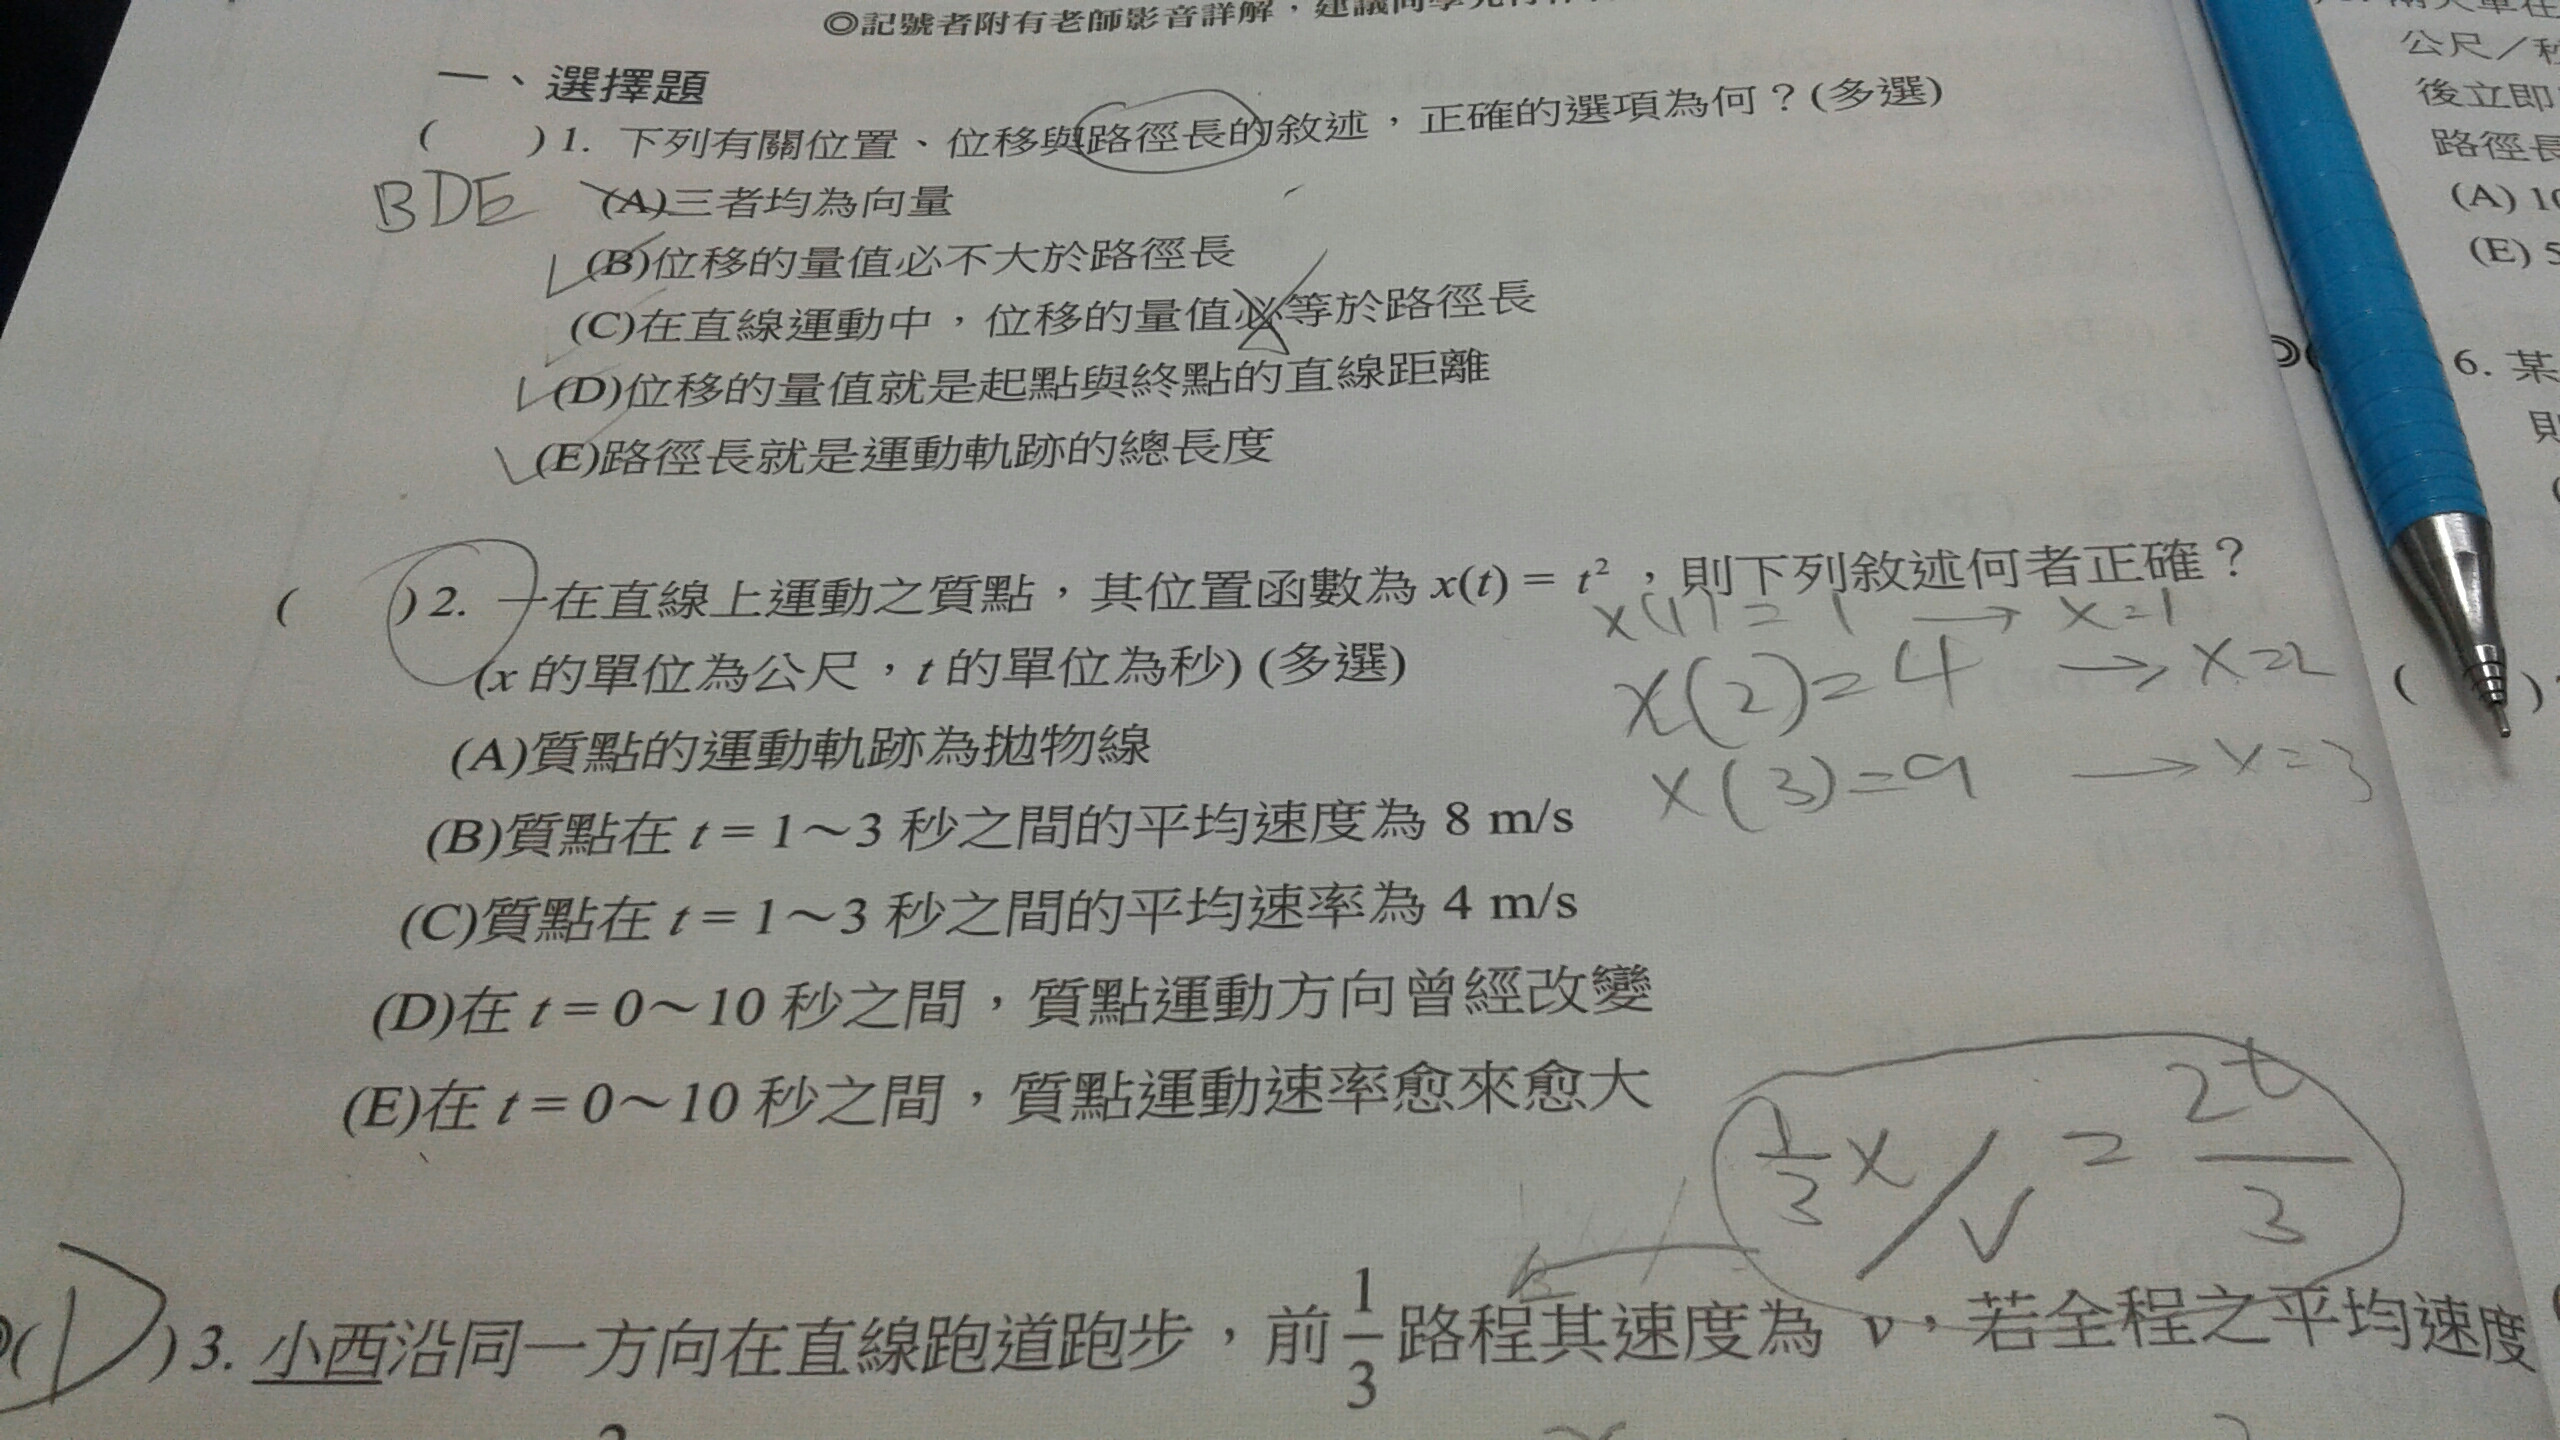 ◎記號者附有老師影音詳解，建議同學先行作
一、選擇題
(　　) 1. 下列有關位置、位移與路徑長的敘述，正確的選項為何？(多選)
BDE
(A)三者均為向量
(B)位移的量值必不大於路徑長
(C)在直線運動中，位移的量值必等於路徑長
(D)位移的量值就是起點與終點的直線距離
(E)路徑長就是運動軌跡的總長度
(　　) 2. 一在直線上運動之質點，其位置函數為 x(t) = t²，則下列敘述何者正確？
x(1) = 1 → x=1
(x 的單位為公尺，t 的單位為秒) (多選)
x(2)=4 → x=2
(A)質點的運動軌跡為拋物線
x(3)=9 → x=3
(B)質點在 t = 1～3 秒之間的平均速度為 8 m/s
(C)質點在 t = 1～3 秒之間的平均速率為 4 m/s
(D)在 t = 0～10 秒之間，質點運動方向曾經改變
(E)在 t = 0～10 秒之間，質點運動速率愈來愈大
1/3 x / v = 2t/3
(D) 3. 小西沿同一方向在直線跑道跑步，前 1/3 路程其速度為 v，若全程之平均速度
公尺／秒
後立即
路徑長
(A) 10
(E) 5
6. 某
則